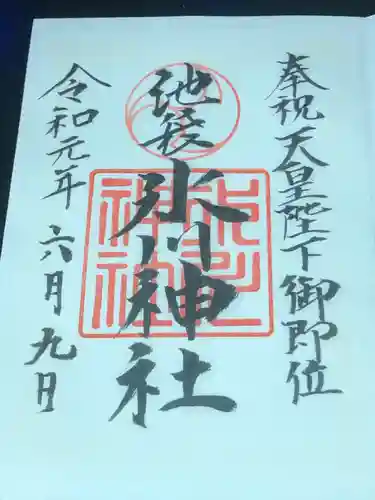 奉祝天皇陛下御即位
池袋
氷川神社
令和元年
六月九日